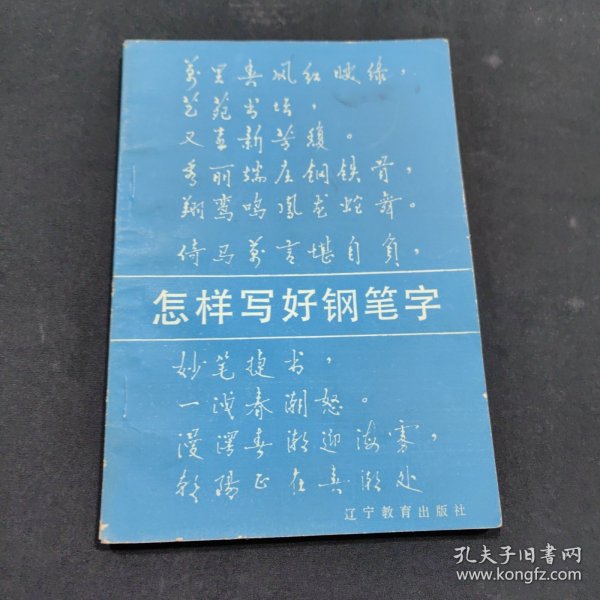 万里典风红暖绿，
艺苑书坛，
又喜新芳馥。
秀丽端庄钢铁骨，
翔鸾鸣凤龙蛇舞。
倚马万言堪自负，
怎样写好钢笔字
妙笔捷书，
一洗春潮怒。
漫浮春潮迎海雾，
朝阳正在春潮处
辽宁教育出版社
孔夫子旧书网
www.kongfz.com